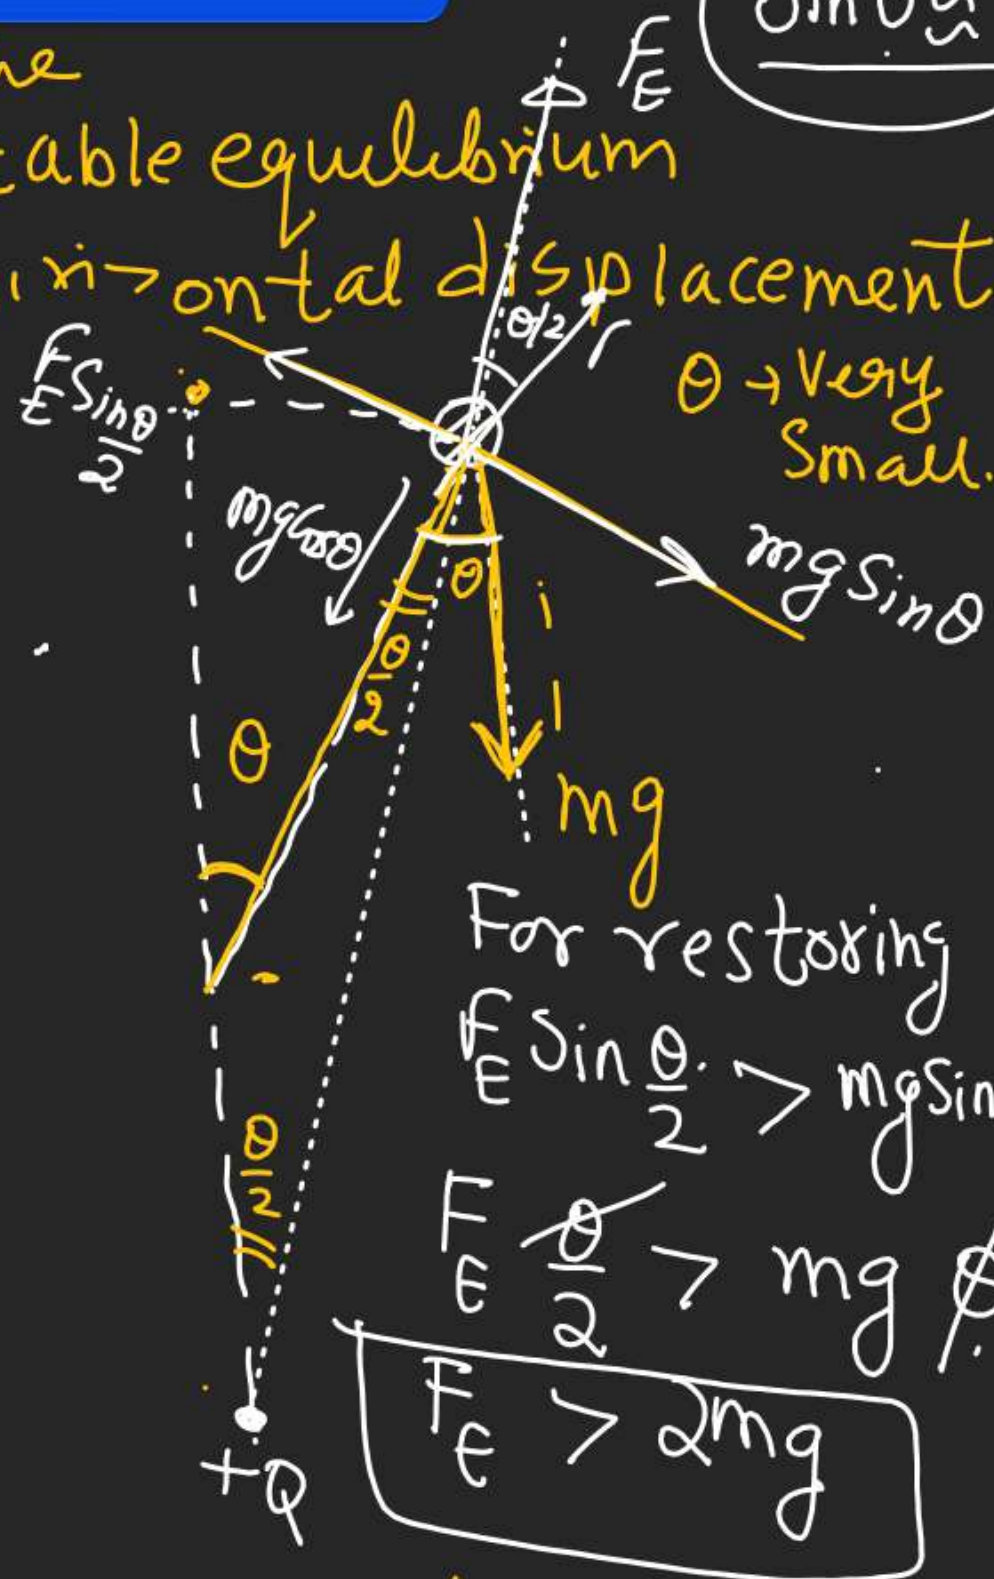 sin θ ≈
F_E
table equilibrium
ontal displacement
θ/2
r
θ → Very
Small.
F_E Sin θ/2
mg Cosθ
mg Sinθ
θ
θ/2
θ
mg
For restoring
F_E Sin θ/2 > mg Sin
θ/2
F_E θ/2 > mg θ
F_E > 2mg
+Q